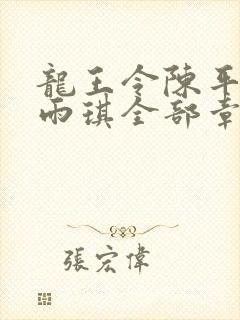 龍王令陳平
雨琪全部章
張宏偉